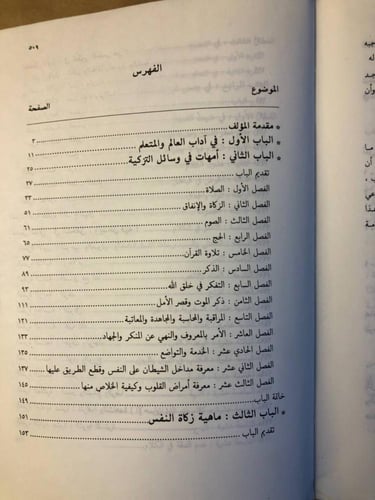 ٥٠٩
الفهرس
الموضوع
الصفحة
* مقدمة المؤلف ٣
* الباب الأول : في آداب العالم والمتعلم ١١
* الباب الثاني : أمهات في وسائل التزكية ٢٥
تقديم الباب ٢٧
الفصل الأول : الصلاة ٣٣
الفصل الثاني : الزكاة والإنفاق ٥١
الفصل الثالث : الصوم ٦١
الفصل الرابع : الحج ٦٥
الفصل الخامس : تلاوة القرآن ٧٧
الفصل السادس : الذكر ٨٩
الفصل السابع : التفكر في خلق الله ٩٣
الفصل الثامن : ذكر الموت وقصر الأمل ١١١
الفصل التاسع : المراقبة والمحاسبة والمجاهدة والمعاتبة ١٢١
الفصل العاشر : الأمر بالمعروف والنهي عن المنكر والجهاد ١٣٣
الفصل الحادي عشر : الخدمة والتواضع ١٣٥
الفصل الثاني عشر : معرفة مداخل الشيطان على النفس وقطع الطريق عليها ١٣٧
الفصل الثالث عشر : معرفة أمراض القلوب وكيفية الخلاص منها ١٤٥
خاتمة الباب ١٤٩
* الباب الثالث : ماهية زكاة النفس ١٥١
تقديم الباب ١٥٣